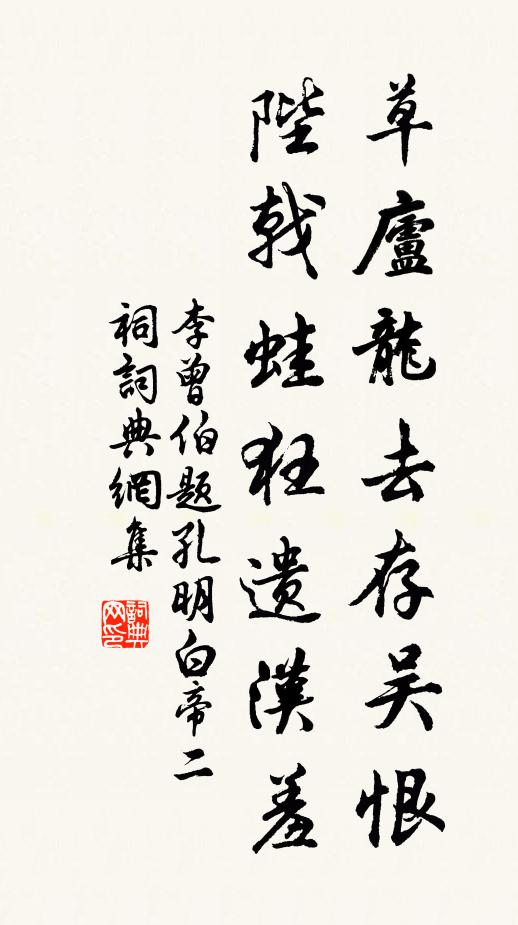 草廬龍去存吴恨
陛戟蛙狂遗漢羞
李曾伯题孔明白帝二
祠詞典網集
詞典网印